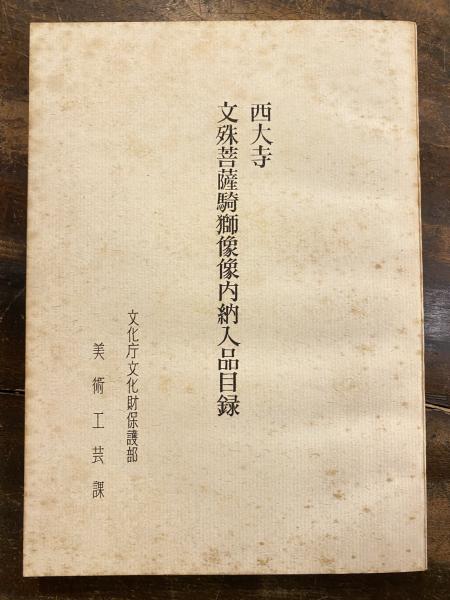 西大寺
文殊菩薩騎獅像像内納入品目録
文化庁文化財保護部
美術工芸課